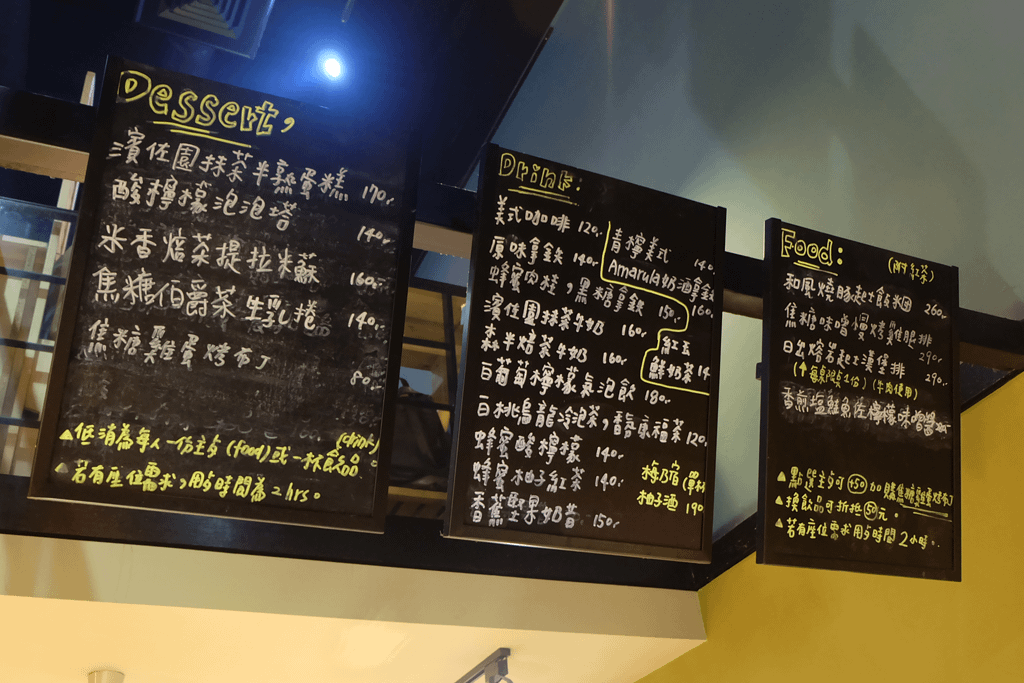 Dessert,
濱佐園抹茶半熟蛋糕 170.
酸檸檬泡泡塔 140.
米香焙茶提拉米蘇 160.
焦糖伯爵茶生乳捲 140.
焦糖雞蛋烤布丁 80.
▲低消為每人一份主食(food)或一杯飲品。(drink)
▲若有座位需求,用餐時間為2hrs。
Drink:
美式咖啡 120.
原味拿鐵 140.
蜂蜜肉桂,黑糖拿鐵 150.
濱佐園抹茶牛奶 160.
焙茶牛奶 160.
白葡萄檸檬氣泡飲 180.
白桃烏龍冷泡茶,康福茶 120.
蜂蜜酸檸檬 140.
蜂蜜柚子紅茶 140.
香蕉堅果奶昔 150.
青檸美式 140.
Amarula奶酒拿鐵 160.
紅玉
鮮奶茶 14
梅乃宿
柚子酒 190
Food:
(附紅茶)
和風燒豚起士飯糰 260.
焦糖味噌烤雞腿排 290.
日式熔岩起士漢堡排 290.
(↑每桌限點1份)(牛肉使用)
香煎鹽鮭魚佐檸檬味噌醬
▲點選主食可+50加購焦糖雞蛋烤布丁
▲換飲品可折抵50元。
▲若有座位需求用餐時間2小時。